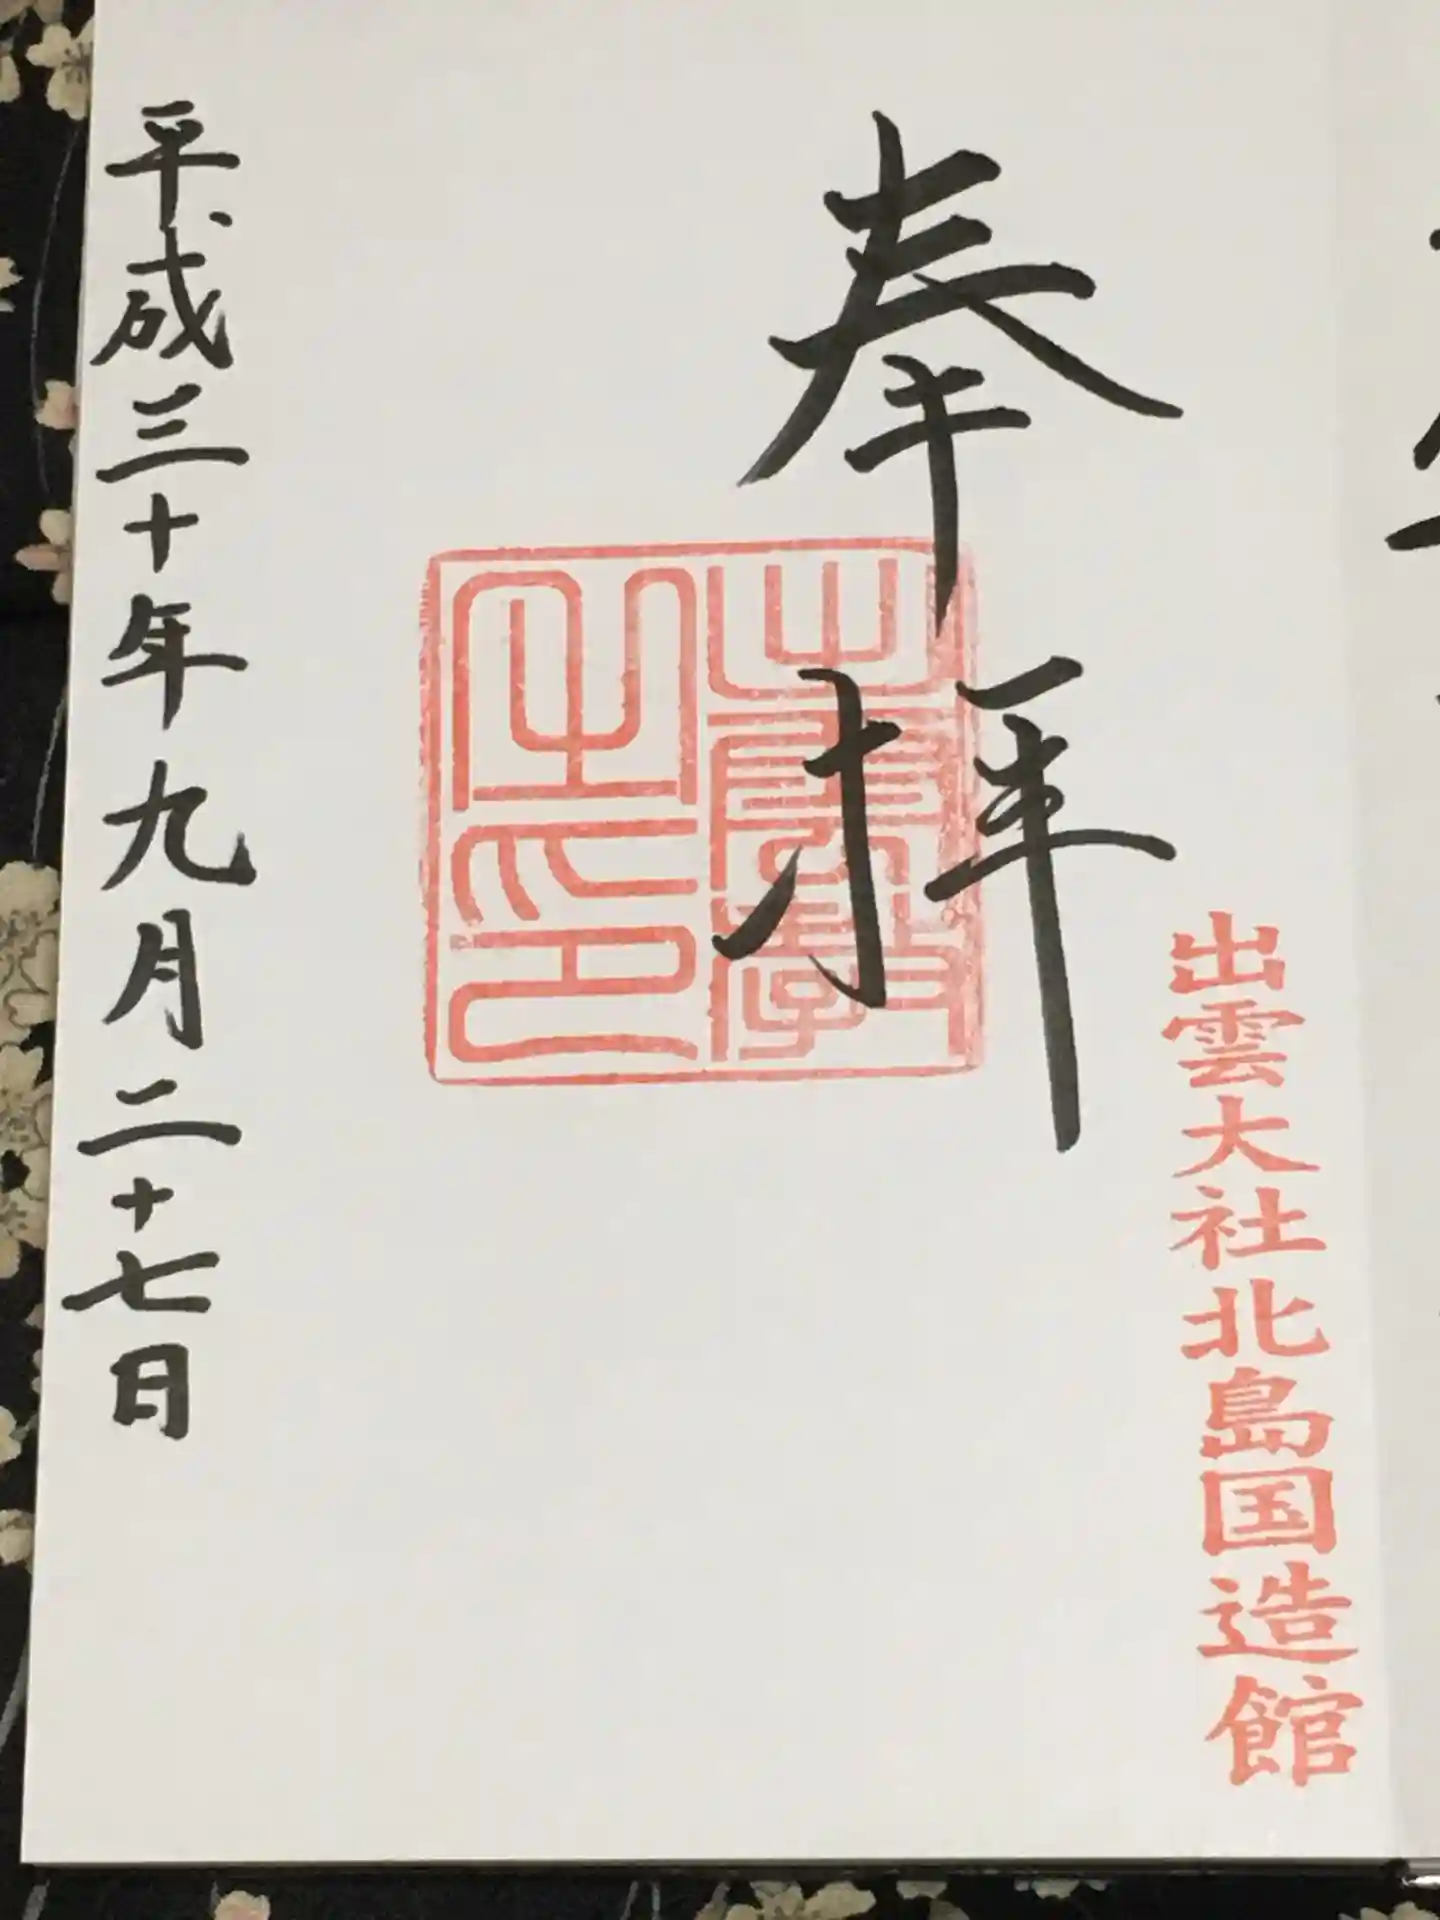 奉拝
出雲大社北島国造館
出雲教
之印
平成三十年九月二十七日